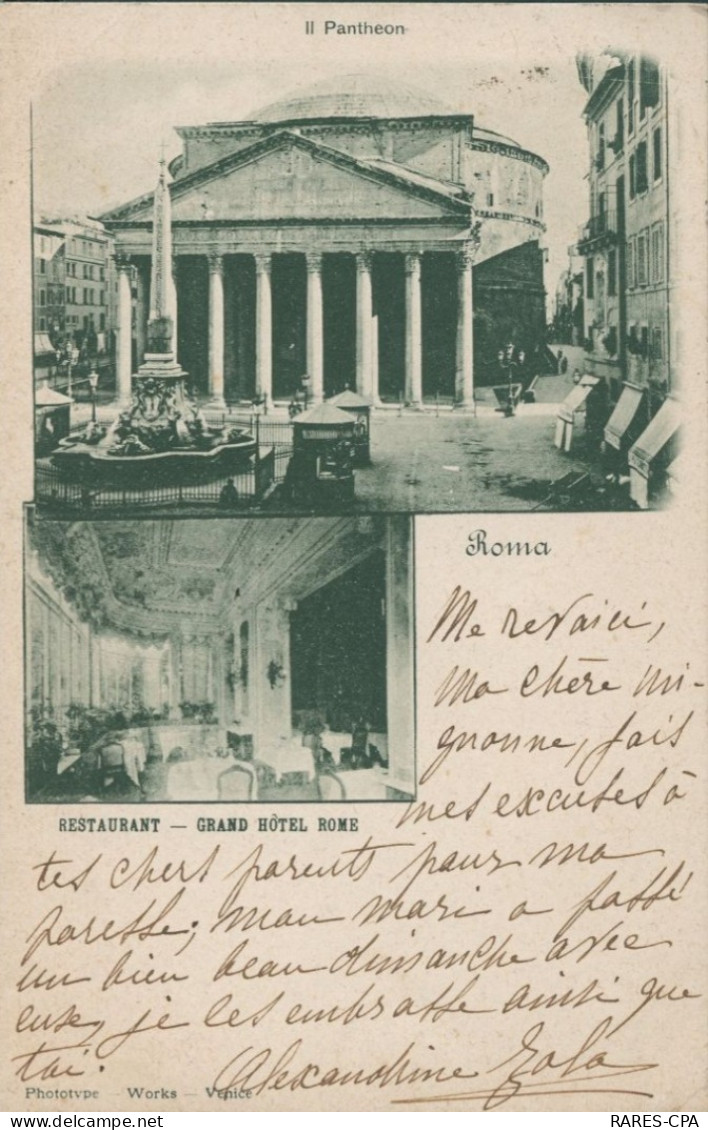 Il Pantheon
Roma
Me revoici,
Ma chère mi-
gnonne, fais
mes excuses à
RESTAURANT — GRAND HÔTEL ROME
tes chers parents pour ma
paresse; mon mari a passé
un bien beau dimanche avec
eux, je les embrasse ainsi que
toi.
Alexandrine Zola
Phototype Works — Venice
RARES-CPA